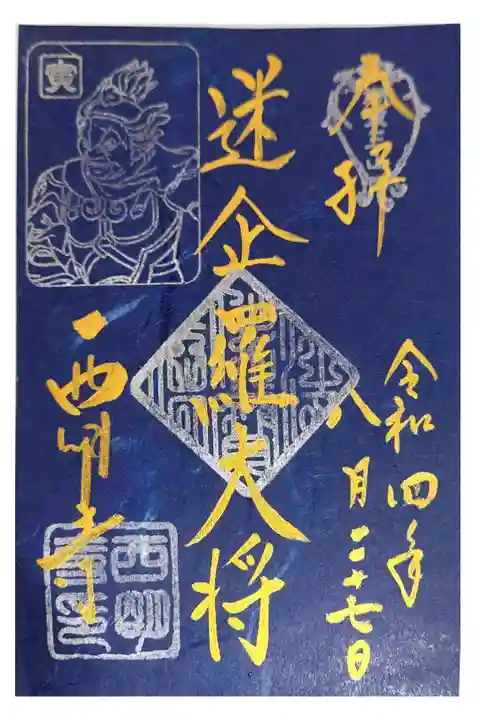 奉拝
令和四年
八月二十七日
迷企羅大将
寅
西明寺
西明寺印